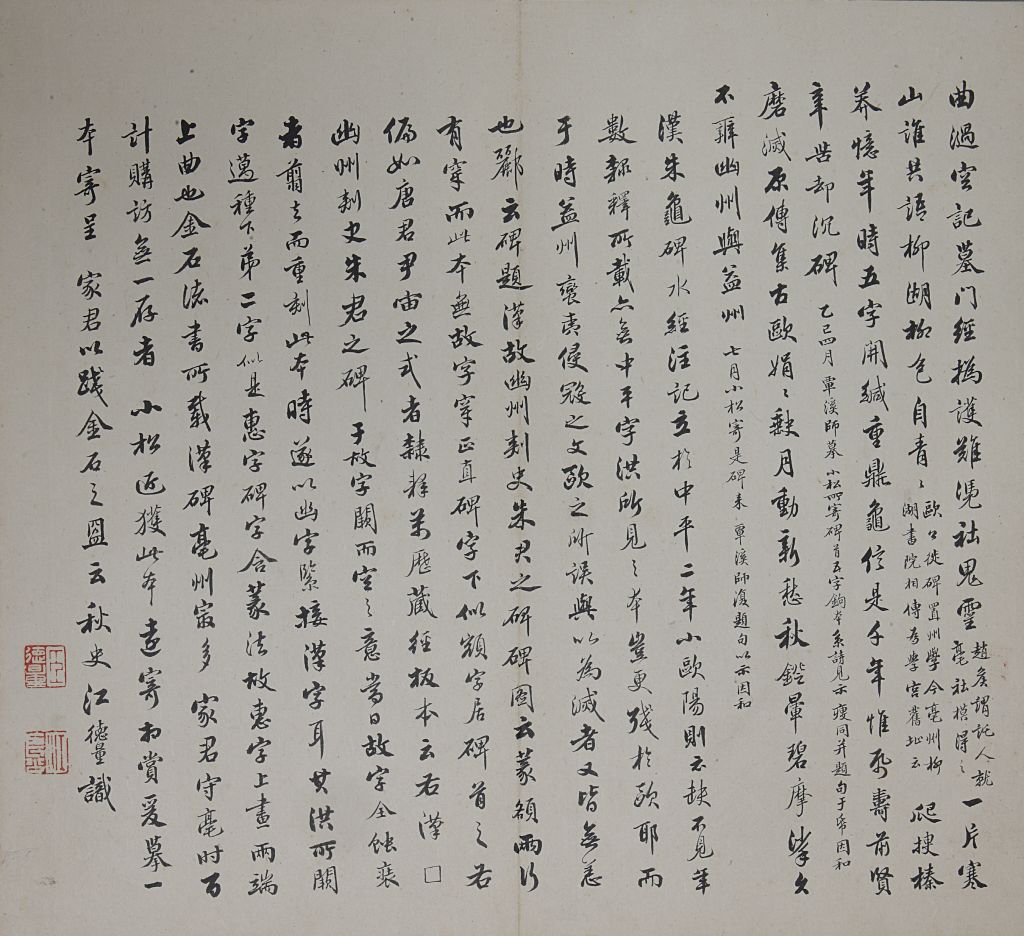 曲濄空記墓門經撝護難憑社鬼靈趙矦謂託人就亳社模得之一片寒
山誰共語柳湖柳色自青青歐公從碑置州學今亳州柳湖書院相傳為學宮舊址云爬搜榛
莽憶年時五字開緘重鼎龜信是千年惟歷壽前賢
辛苦却沉碑乙巳四月覃溪師摹小松所寄碑首五字鉤本系詩見示瘦同并題句于帋因和
磨滅原傳集古歐娟娟缺月動新愁秋鐙暈碧摩挲久
不辨幽州與益州七月小松寄是碑來覃溪師復題句以示因和
漢朱龜碑水經注記立於中平二年小歐陽則云缺不見年
數隸釋所載亦無中平字洪所見之本豈更殘於歐耶而
于時益州襃夷侵毀之文歐之所誤與以為滅者又皆無恙
也酈云碑題漢故幽州刺史朱君之碑碑圖云篆額兩行
有穿而此本無故字穿正直碑字下似額字居碑首之右
偏如唐君尹宙之式者隸釋萬歷藏經板本云右漢□
幽州刺史朱君之碑于故字闕而空之意當日故字全蝕裝
者翦去而重刻此本時遂以幽字緊接漢字耳其洪所闕
字邁種下第二字似是惠字碑字含篆法故惠字上畫兩端
上曲也金石諸書所載漢碑亳州冣多家君守亳時百
計購訪無一存者小松近獲此本遠寄相賞爰摹一
本寄呈家君以踐金石之盟云秋史江德量識